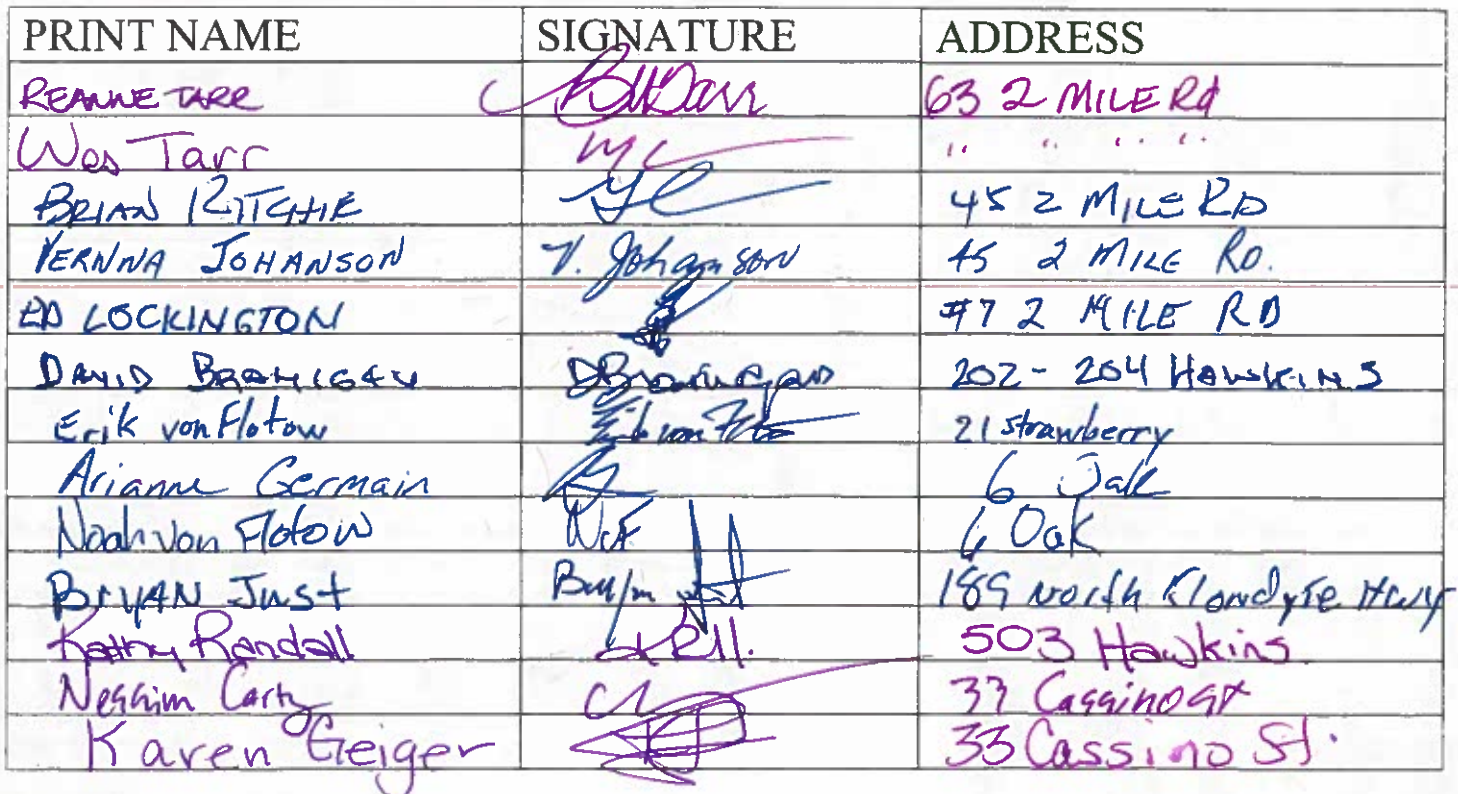 PRINT NAME SIGNATURE ADDRESS
REANNE TARR 63 2 MILE Rd
Wes Tarr " " " "
BRIAN RITCHIE 45 2 MILE RD
VERNNA JOHANSON V. Johanson 45 2 MILE RD.
ED LOCKINGTON #7 2 MILE RD
DAVID BRANIGAN DBranigan 202-204 HAWKINS
Erik von Flotow Erik von Flo 21 strawberry
Arianne Germain 6 Oak
Noah von Flotow NvF 6 Oak
BryAN Just 189 North Klondyke Hwy
Kathy Randall 503 Hawkins
Nessim Carty 33 Cassino St
Karen Geiger 33 Cassino St.